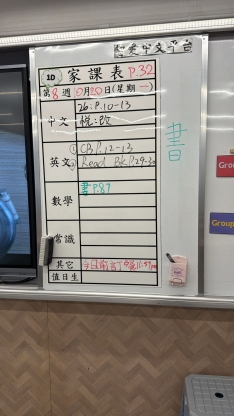 1D 家課表 P.32
第8週 10月20日(星期一)
中文
26.P.10-13
悅:改
英文
① CB P.12-13
② Read Bk P.29-30
數學
書P.87
常識
其它
值日生
書
Gro
Group